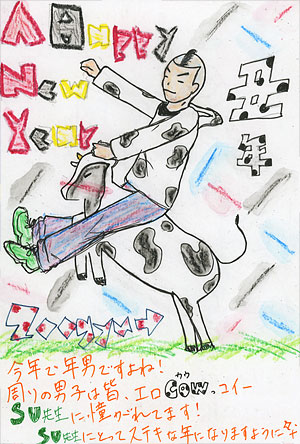 A Happy
New
Year
丑
年
今年で年男ですよね!
カウ
周りの男子は皆、エロCOWっコイー
SU先生に憧がれてます!
SU先生にとってステキな年になりますように